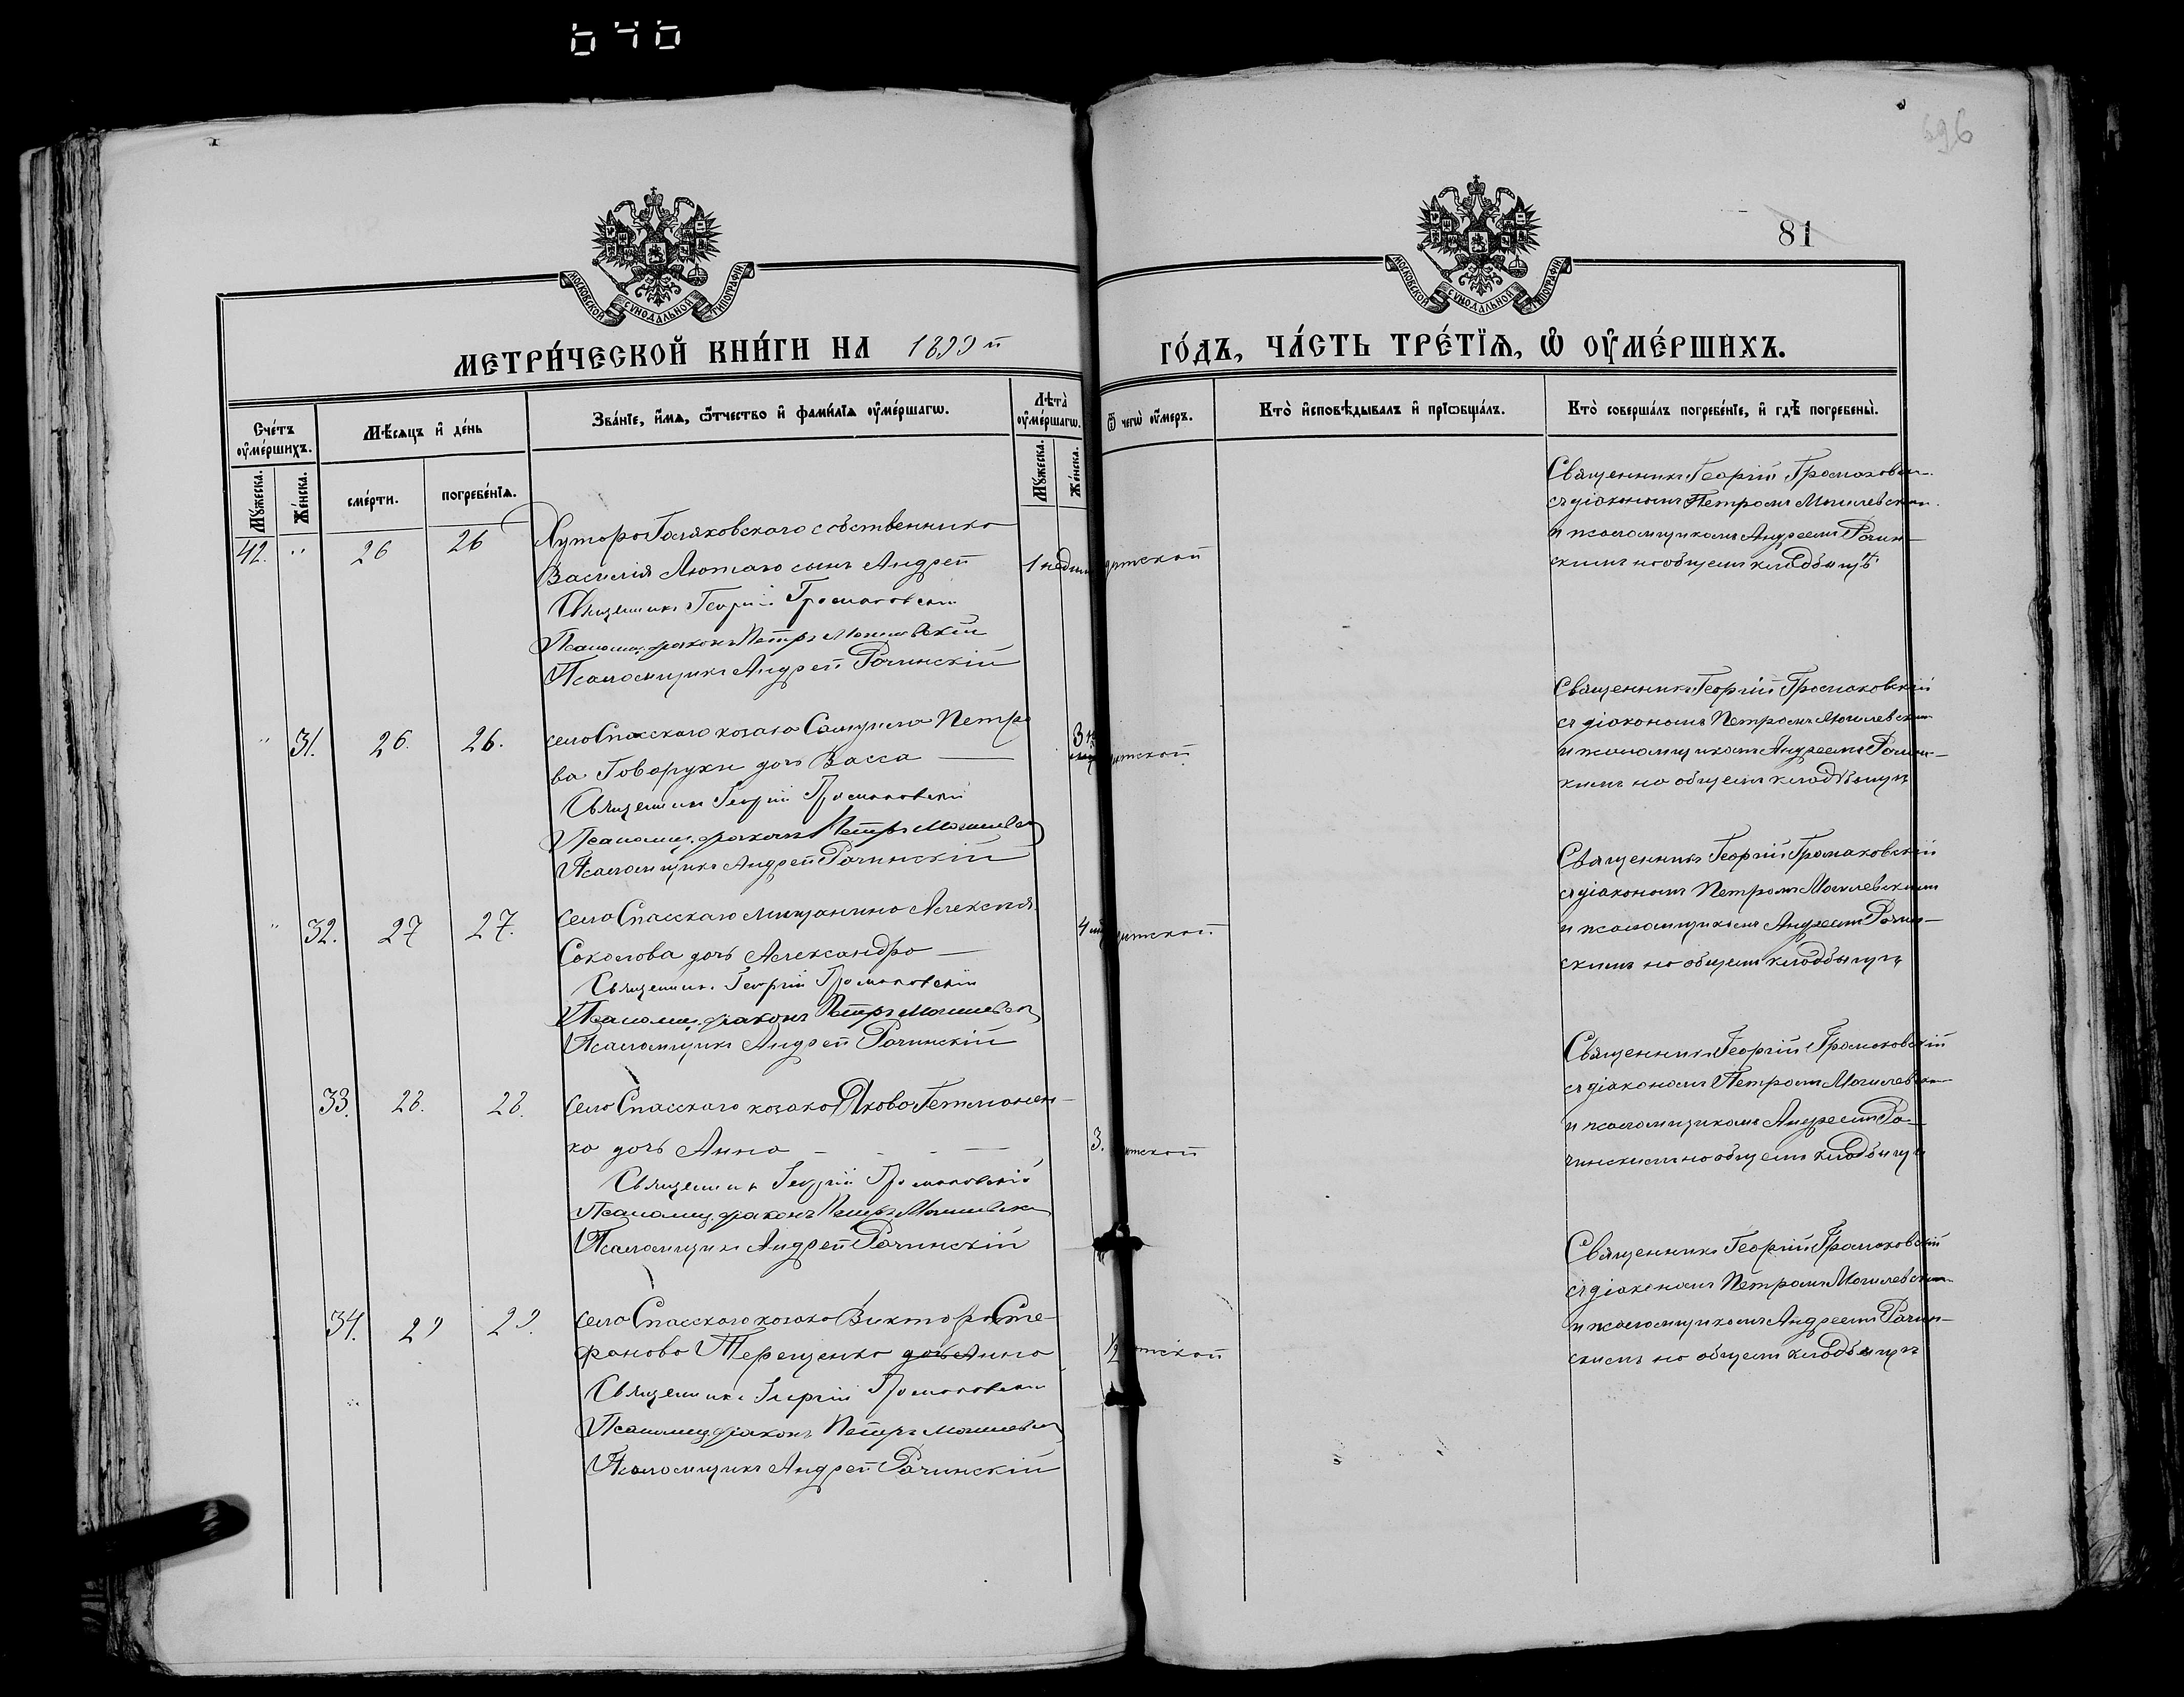 646
696
81
МОСКОВСКОЙ СУНОДАЛЬНОЙ ТИПОГРАФІИ.
МОСКОВСКОЙ СУНОДАЛЬНОЙ ТИПОГРАФІИ.
МЕТРИ́ЧЕСКОЙ КНИ́ГИ НА 1899 й ГО́ДЪ, ЧА́СТЬ ТРЕ́ТЇѦ, Ѽ ОУ҆МЕ́РШИХЪ.
Сче́тъ оу҆ме́ршихъ.
Мѣ́сѧцъ и҆ де́нь
Зва́нїе, и҆́мѧ, ѻ҆́тчество и҆ фами́лїѧ оу҆ме́ршагѡ.
Лѣ́та оу҆ме́ршагѡ.
Ѿ чегѡ̀ оу҆́меръ.
Кто̀ и҆сповѣ́дывалъ и҆ прїѡбща́лъ.
Кто̀ соверша́лъ погребе́нїе, и҆ гдѣ̀ погребены̀.
Му́жеска.
Же́нска.
сме́рти.
погребе́нїѧ.
Му́жеска.
Же́нска.
42. " 26 26 Хутора собственника
Василія Лютаго сынъ Андрей 1 недѣли дѣтской
Священникъ Георгій Громаковскій
Псаломщ. діаконъ Петръ Могилевскій
Псаломщикъ Андрей Рачинскій
Священникъ Георгій Громаковскій
съ діакономъ Петромъ Могилевскимъ
и псаломщикомъ Андреемъ Рачин-
скимъ на общемъ кладбищѣ
" 31. 26. 26. Села Спасскаго козака Самуила Петро
ва Говорухи дочь Васса 3 дѣтской
Священникъ Георгій Громаковскій
Псаломщ. діаконъ Петръ Могилевскій
Псаломщикъ Андрей Рачинскій
Священникъ Георгій Громаковскій
съ діакономъ Петромъ Могилевскимъ
и псаломщикомъ Андреемъ Рачин-
скимъ на общемъ кладбищѣ
" 32. 27 27. Села Спасскаго мѣщанина Алексѣя
Соколова дочь Александра 4 дѣтской
Священникъ Георгій Громаковскій
Псаломщ. діаконъ Петръ Могилевскій
Псаломщикъ Андрей Рачинскій
Священникъ Георгій Громаковскій
съ діакономъ Петромъ Могилевскимъ
и псаломщикомъ Андреемъ Рачин-
скимъ на общемъ кладбищѣ
33. 28. 28. Села Спасскаго козака Якова Гетманен-
ка дочь Анна 3. дѣтской
Священникъ Георгій Громаковскій
Псаломщ. діаконъ Петръ Могилевскій
Псаломщикъ Андрей Рачинскій
Священникъ Георгій Громаковскій
съ діакономъ Петромъ Могилевскимъ
и псаломщикомъ Андреемъ Ра-
чинскимъ на общемъ кладбищѣ
34. 29 29. Села Спасскаго козака Виктора Сте-
фанова Терещенко дочь Анна 1/2 дѣтской
Священникъ Георгій Громаковскій
Псаломщ. діаконъ Петръ Могилевскій
Псаломщикъ Андрей Рачинскій
Священникъ Георгій Громаковскій
съ діакономъ Петромъ Могилевскимъ
и псаломщикомъ Андреемъ Рачин-
скимъ на общемъ кладбищѣ